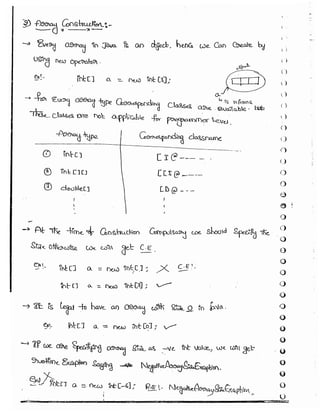 3) Array Construction :-
→ Every array in Java is an object, hence we can create by
using new operator.
object
Ex:- int[] a = new int[3];
a
→ For Every array type corresponding classes are available but
These classes are not applicable for programmer level.
Array type Corresponding classname
① int[] [I@-----
② int[][] [[I@-----
③ double[] [D@----
→ At the time of construction compulsory we should specify the
size otherwise we will get C.E.
Ex:- int[] a = new int[]; ✗ C.E:
int[] a = new int[3]; ✓
→ It is legal to have an array with size 0 in java.
Ex:- int[] a = new int[0]; ✓
→ If we are specifying array size as -ve int value, we will get
Runtime Exception saying NegativeArraySizeException.
Ex:- ✗ int[] a = new int[-6]; R.E:- NegativeArraySizeException.